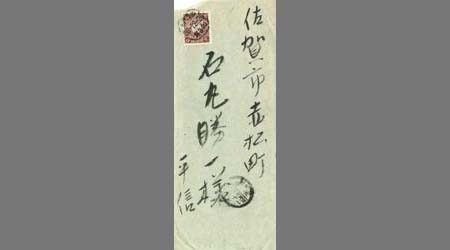 佐賀市赤松町
石丸勝一様
平信